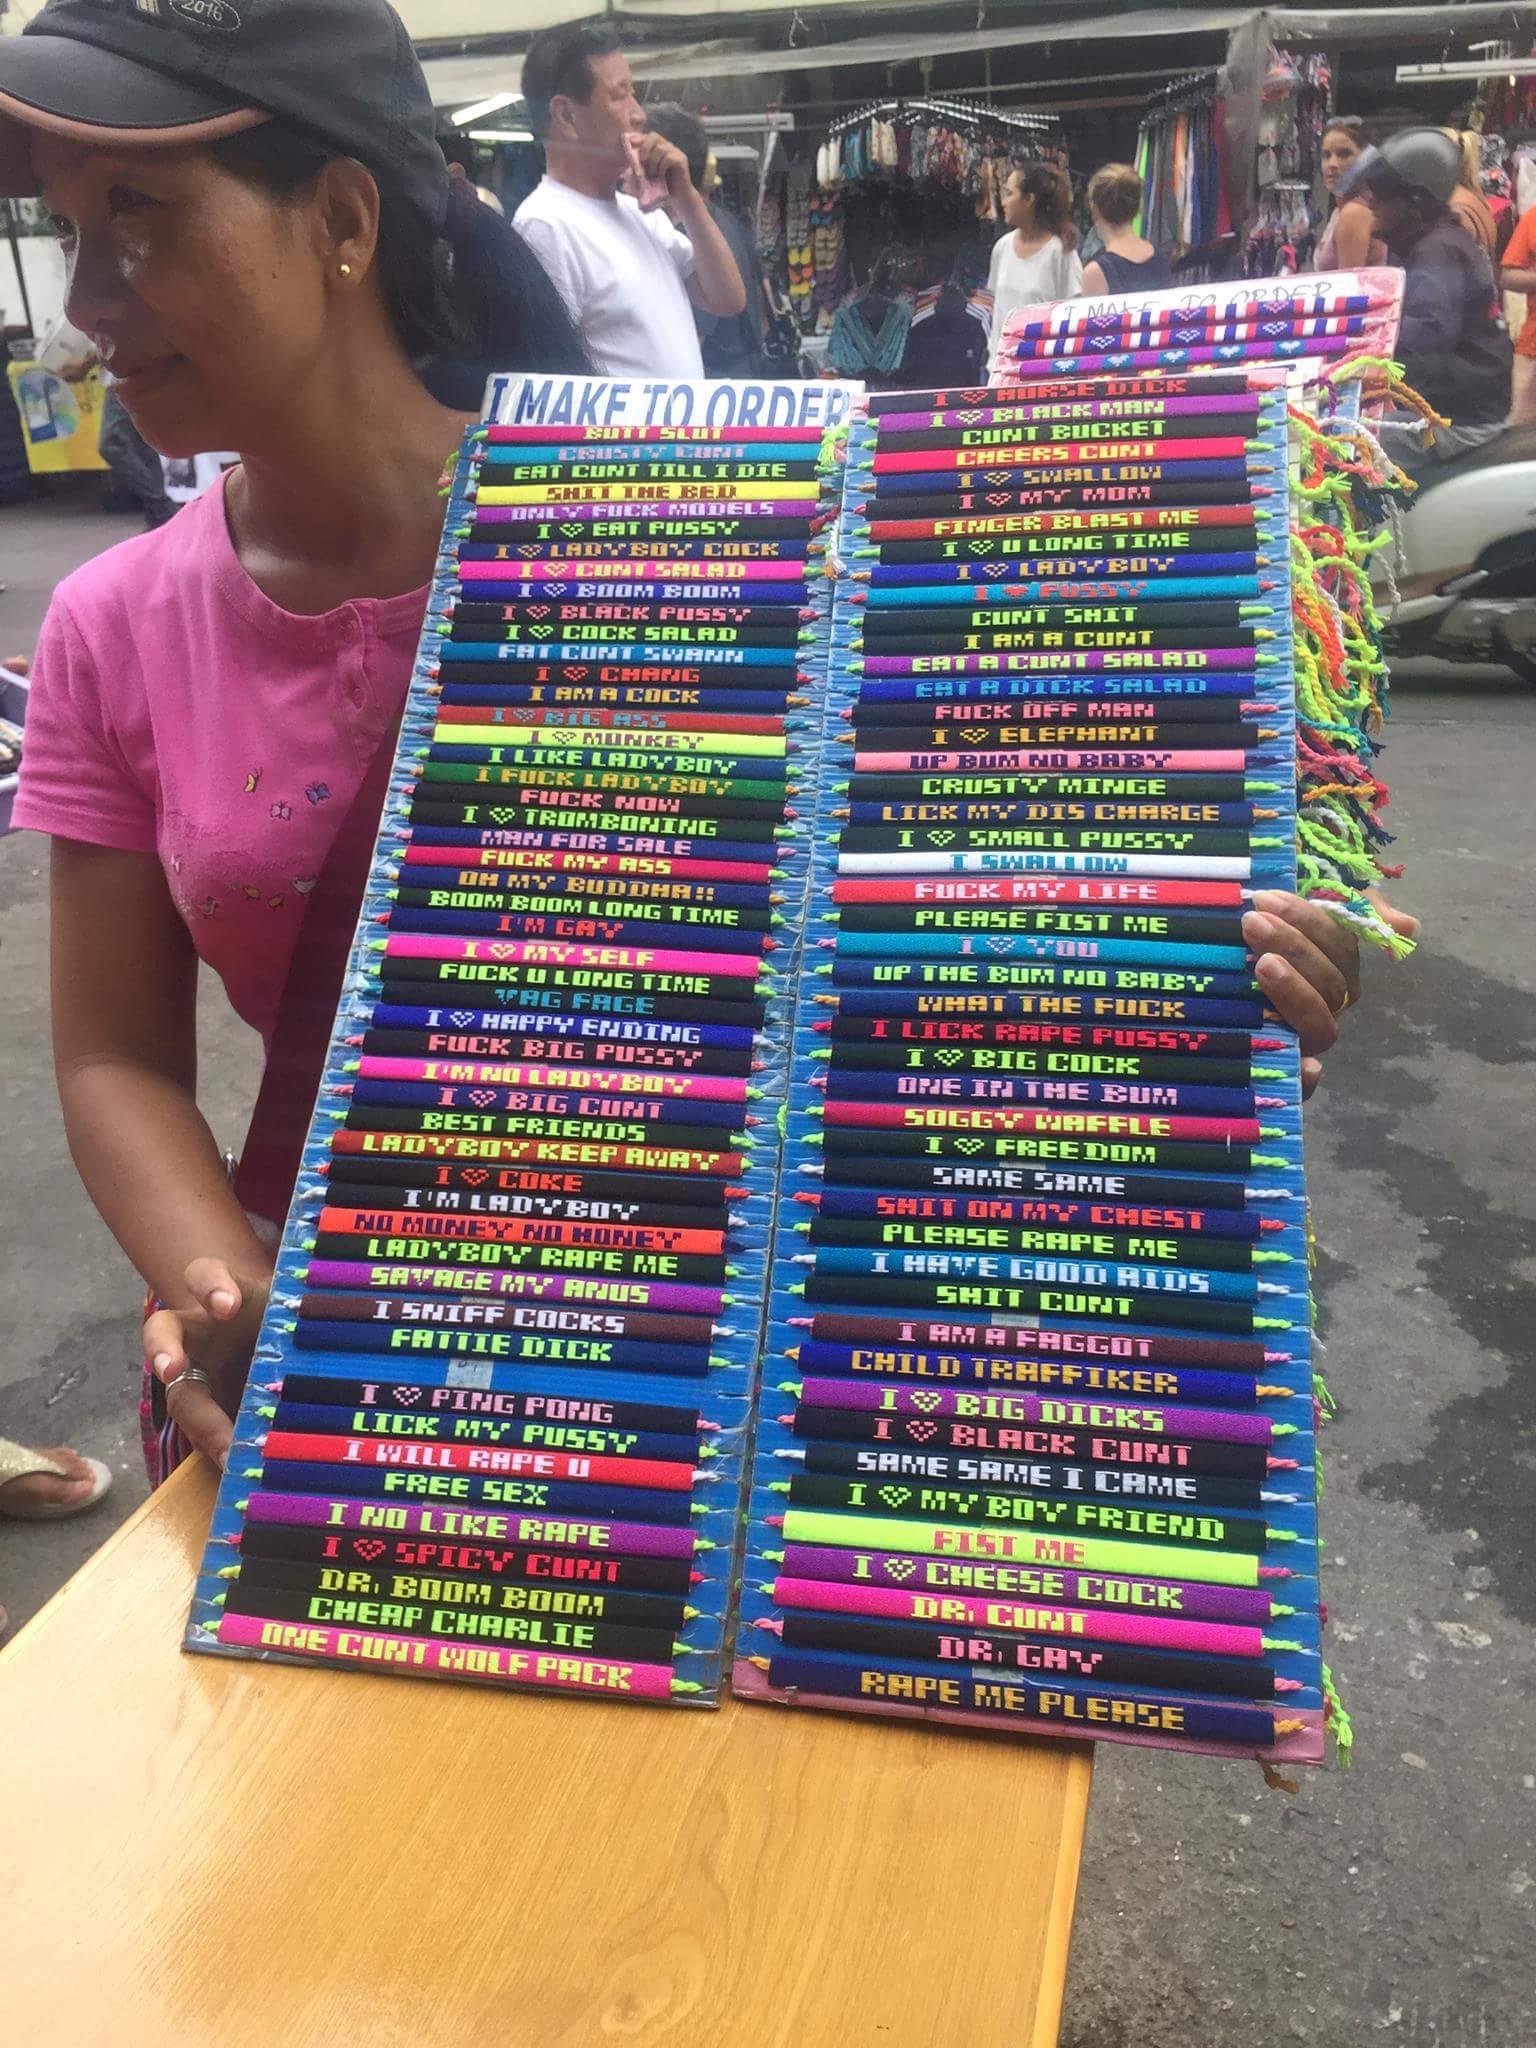 2016
I MAKE TO ORDER
BUTT SLUT
CRUSTY CUNT
EAT CUNT TILL I DIE
SHIT THE BED
ONLY FUCK MODELS
I ♡ EAT PUSSY
I ♡ LADYBOY COCK
I ♡ CUNT SALAD
I ♡ BOOM BOOM
I ♡ BLACK PUSSY
I ♡ COCK SALAD
FAT CUNT SWANN
I ♡ CHANG
I AM A COCK
I ♡ BIG ASS
I ♡ MONKEY
I LIKE LADYBOY
I FUCK LADYBOY
FUCK NOW
I ♡ TROMBONING
MAN FOR SALE
FUCK MY ASS
OH MY BUDDHA!!
BOOM BOOM LONG TIME
I'M GAY
I ♡ MY SELF
FUCK U LONG TIME
VAG FACE
I ♡ HAPPY ENDING
FUCK BIG PUSSY
I'M NO LADYBOY
I ♡ BIG CUNT
BEST FRIENDS
LADYBOY KEEP AWAY
I ♡ COKE
I'M LADYBOY
NO MONEY NO HONEY
LADYBOY RAPE ME
SAVAGE MY ANUS
I SNIFF COCKS
FATTIE DICK
I ♡ PING PONG
LICK MY PUSSY
I WILL RAPE U
FREE SEX
I NO LIKE RAPE
I ♡ SPICY CUNT
DR. BOOM BOOM
CHEAP CHARLIE
ONE CUNT WOLF PACK
I ♡ HORSE DICK
I ♡ BLACK MAN
CUNT BUCKET
CHEERS CUNT
I ♡ SWALLOW
I ♡ MY MOM
FINGER BLAST ME
I ♡ U LONG TIME
I ♡ LADYBOY
I ♥ PUSSY
CUNT SHIT
I AM A CUNT
EAT A CUNT SALAD
EAT A DICK SALAD
FUCK OFF MAN
I ♡ ELEPHANT
UP BUM NO BABY
CRUSTY MINGE
LICK MY DIS CHARGE
I ♡ SMALL PUSSY
I SWALLOW
FUCK MY LIFE
PLEASE FIST ME
I ♡ YOU
UP THE BUM NO BABY
WHAT THE FUCK
I LICK RAPE PUSSY
I ♡ BIG COCK
ONE IN THE BUM
SOGGY WAFFLE
I ♡ FREEDOM
SAME SAME
SHIT ON MY CHEST
PLEASE RAPE ME
I HAVE GOOD AIDS
SHIT CUNT
I AM A FAGGOT
CHILD TRAFFIKER
I ♡ BIG DICKS
I ♡ BLACK CUNT
SAME SAME I CAME
I ♡ MY BOY FRIEND
FIST ME
I ♡ CHEESE COCK
DR. CUNT
DR. GAY
RAPE ME PLEASE
I MAKE TO ORDER